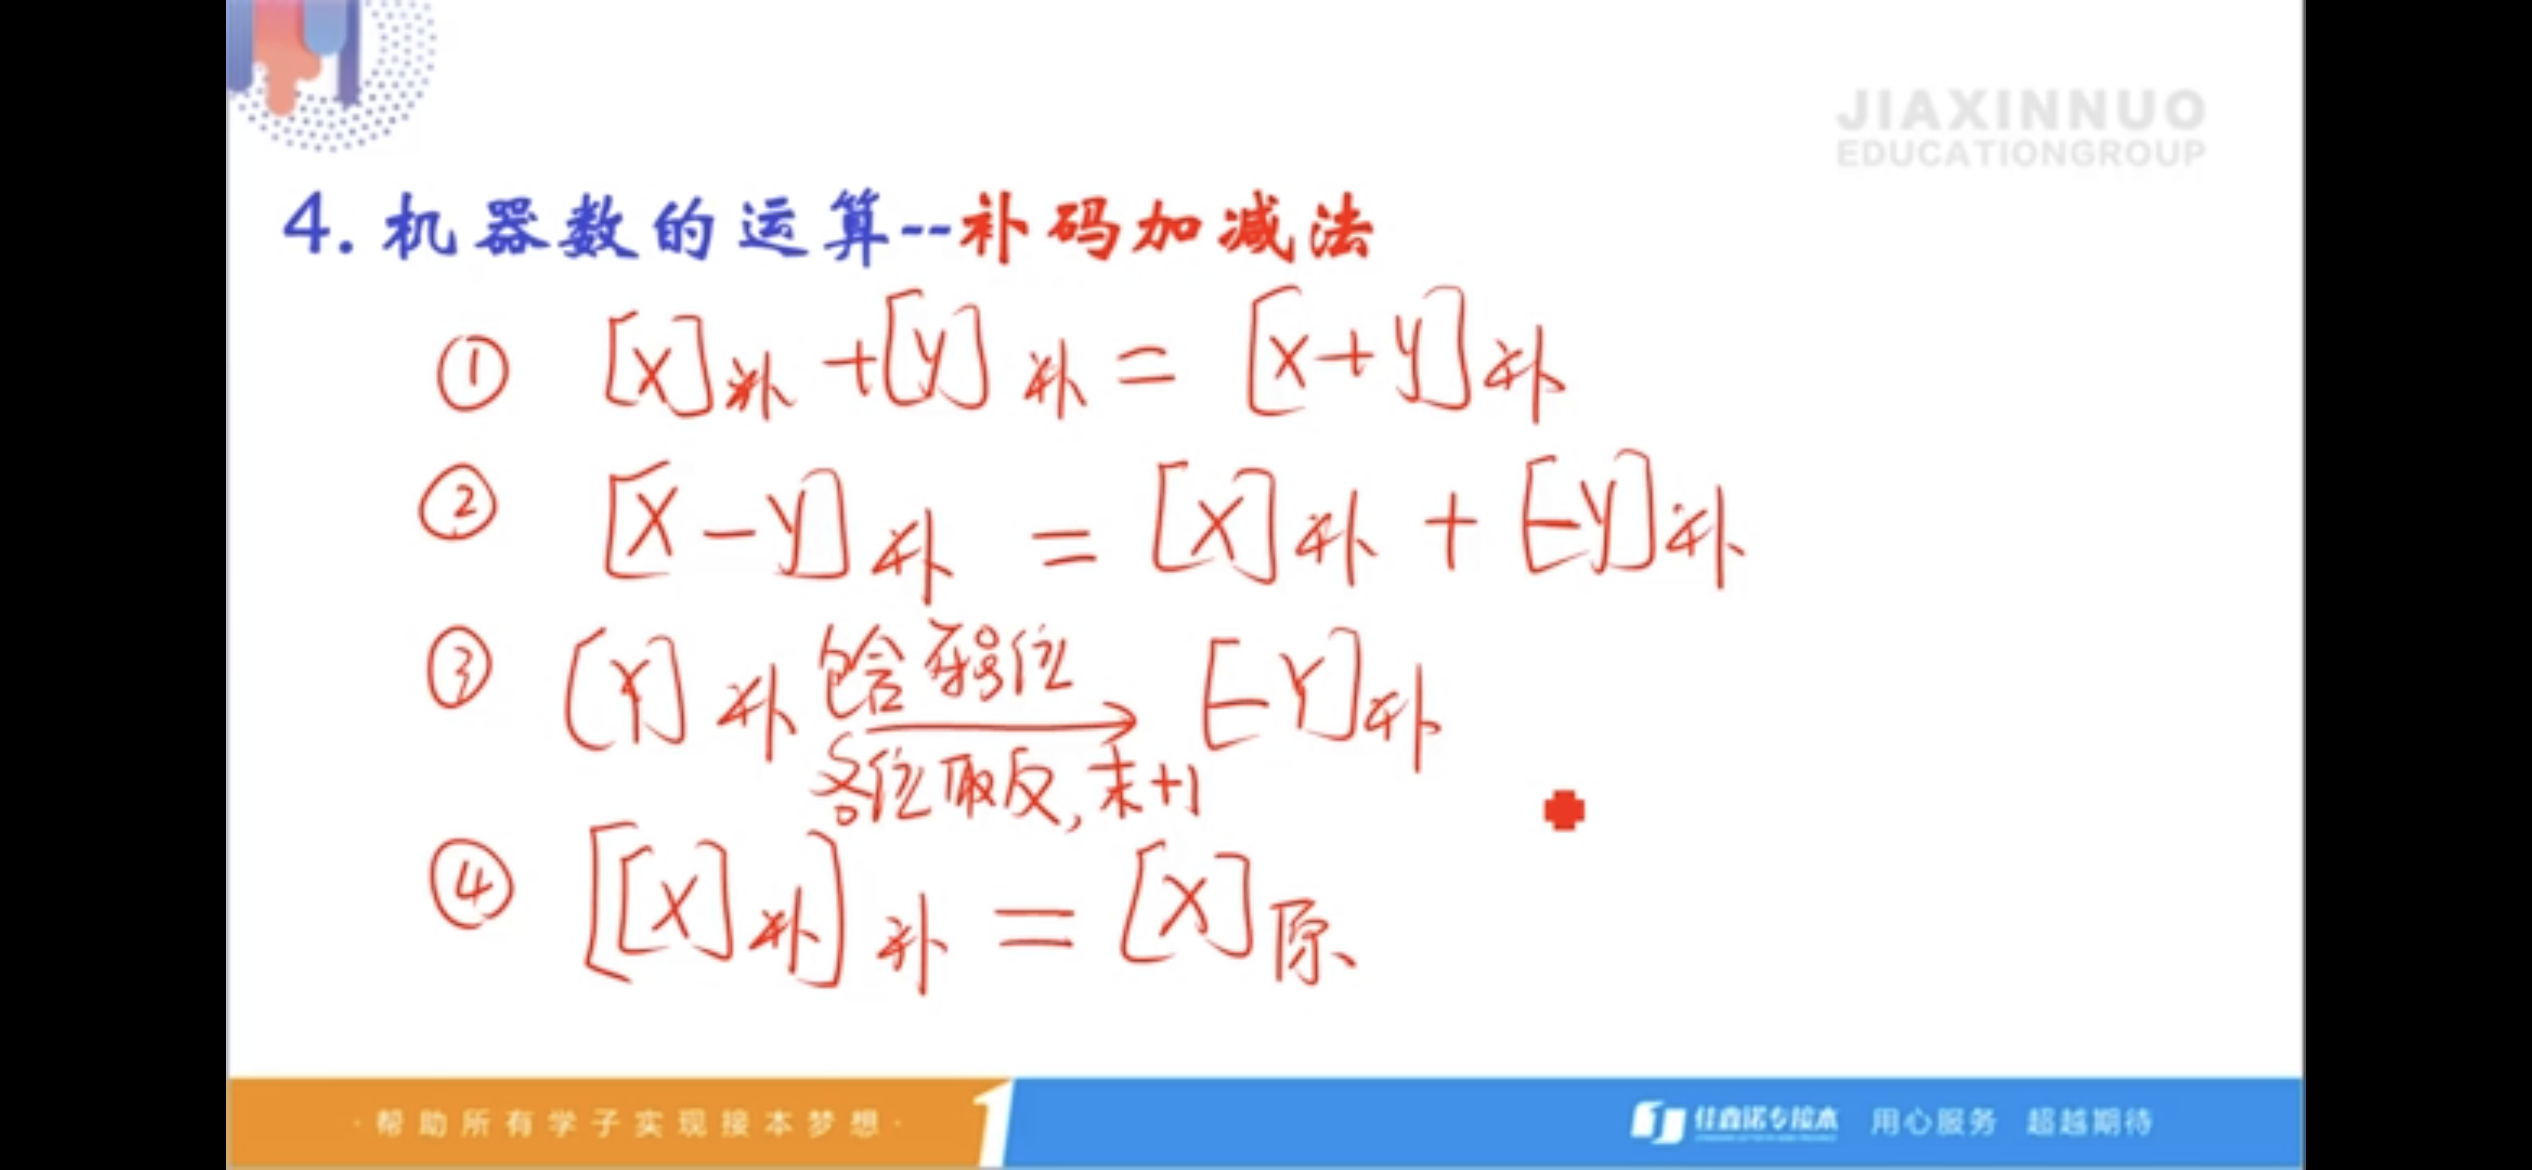 JIAXINNUO
EDUCATIONGROUP
4. 机器数的运算--补码加减法
① [X]补 + [Y]补 = [X+Y]补
② [X-Y]补 = [X]补 + [-Y]补
③ [Y]补 包含符号位 各位取反,末+1 → [-Y]补
④ [[X]补]补 = [X]原
·帮助所有学子实现接本梦想·
1
佳鑫诺专接本 用心服务 超越期待